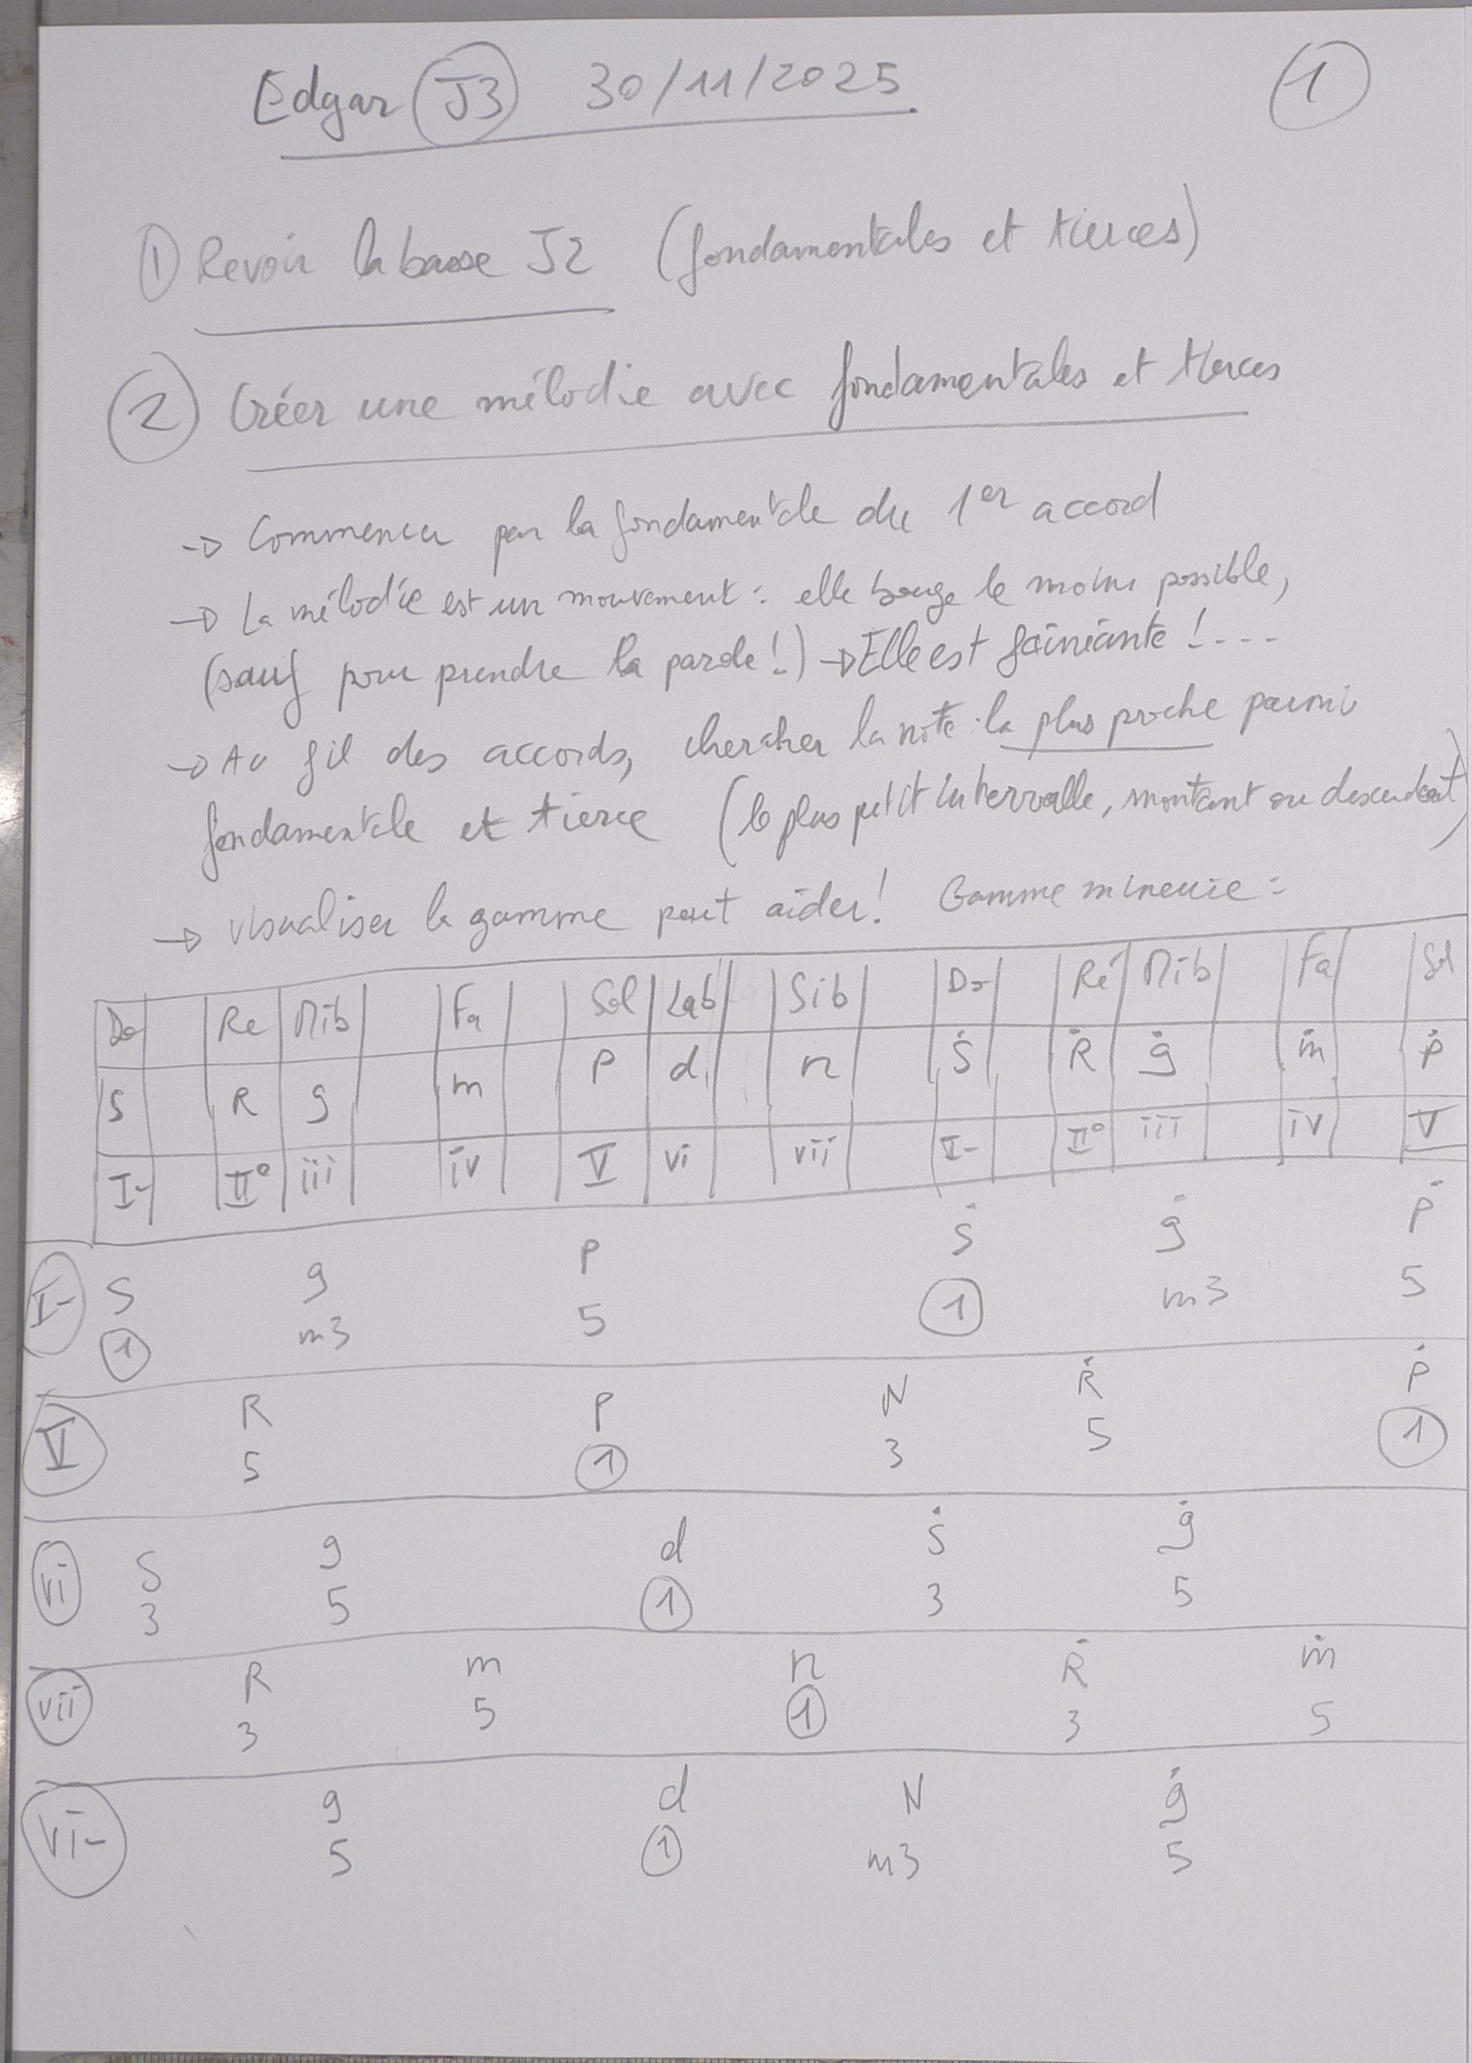 Edgar J3 30/11/2025 1
① Revoir la basse J2 (fondamentales et tierces)
② Créer une mélodie avec fondamentales et tierces
→ Commencer par la fondamentale du 1er accord
→ La mélodie est un mouvement : elle bouge le moins possible,
(sauf pour prendre la parole !) → Elle est fainéante !...
→ Au fil des accords, chercher la note la plus proche parmi
fondamentale et tierce (le plus petit intervalle, montant ou descendant)
→ visualiser la gamme peut aider ! Gamme mineure :
Do Re Mib Fa Sol Lab Sib Do Ré Mib Fa Sol
S R g m P d n Ṡ Ṙ ġ ṁ Ṗ
I- II° iii iv V vi vii I- II° iii iv V
I- S g P Ṡ ġ Ṗ
① m3 5 ① m3 5
V R P N Ṙ Ṗ
5 ① 3 5 ①
vi S g d Ṡ ġ
3 5 ① 3 5
vii R m n Ṙ ṁ
3 5 ① 3 5
vi- g d N ġ
5 ① m3 5